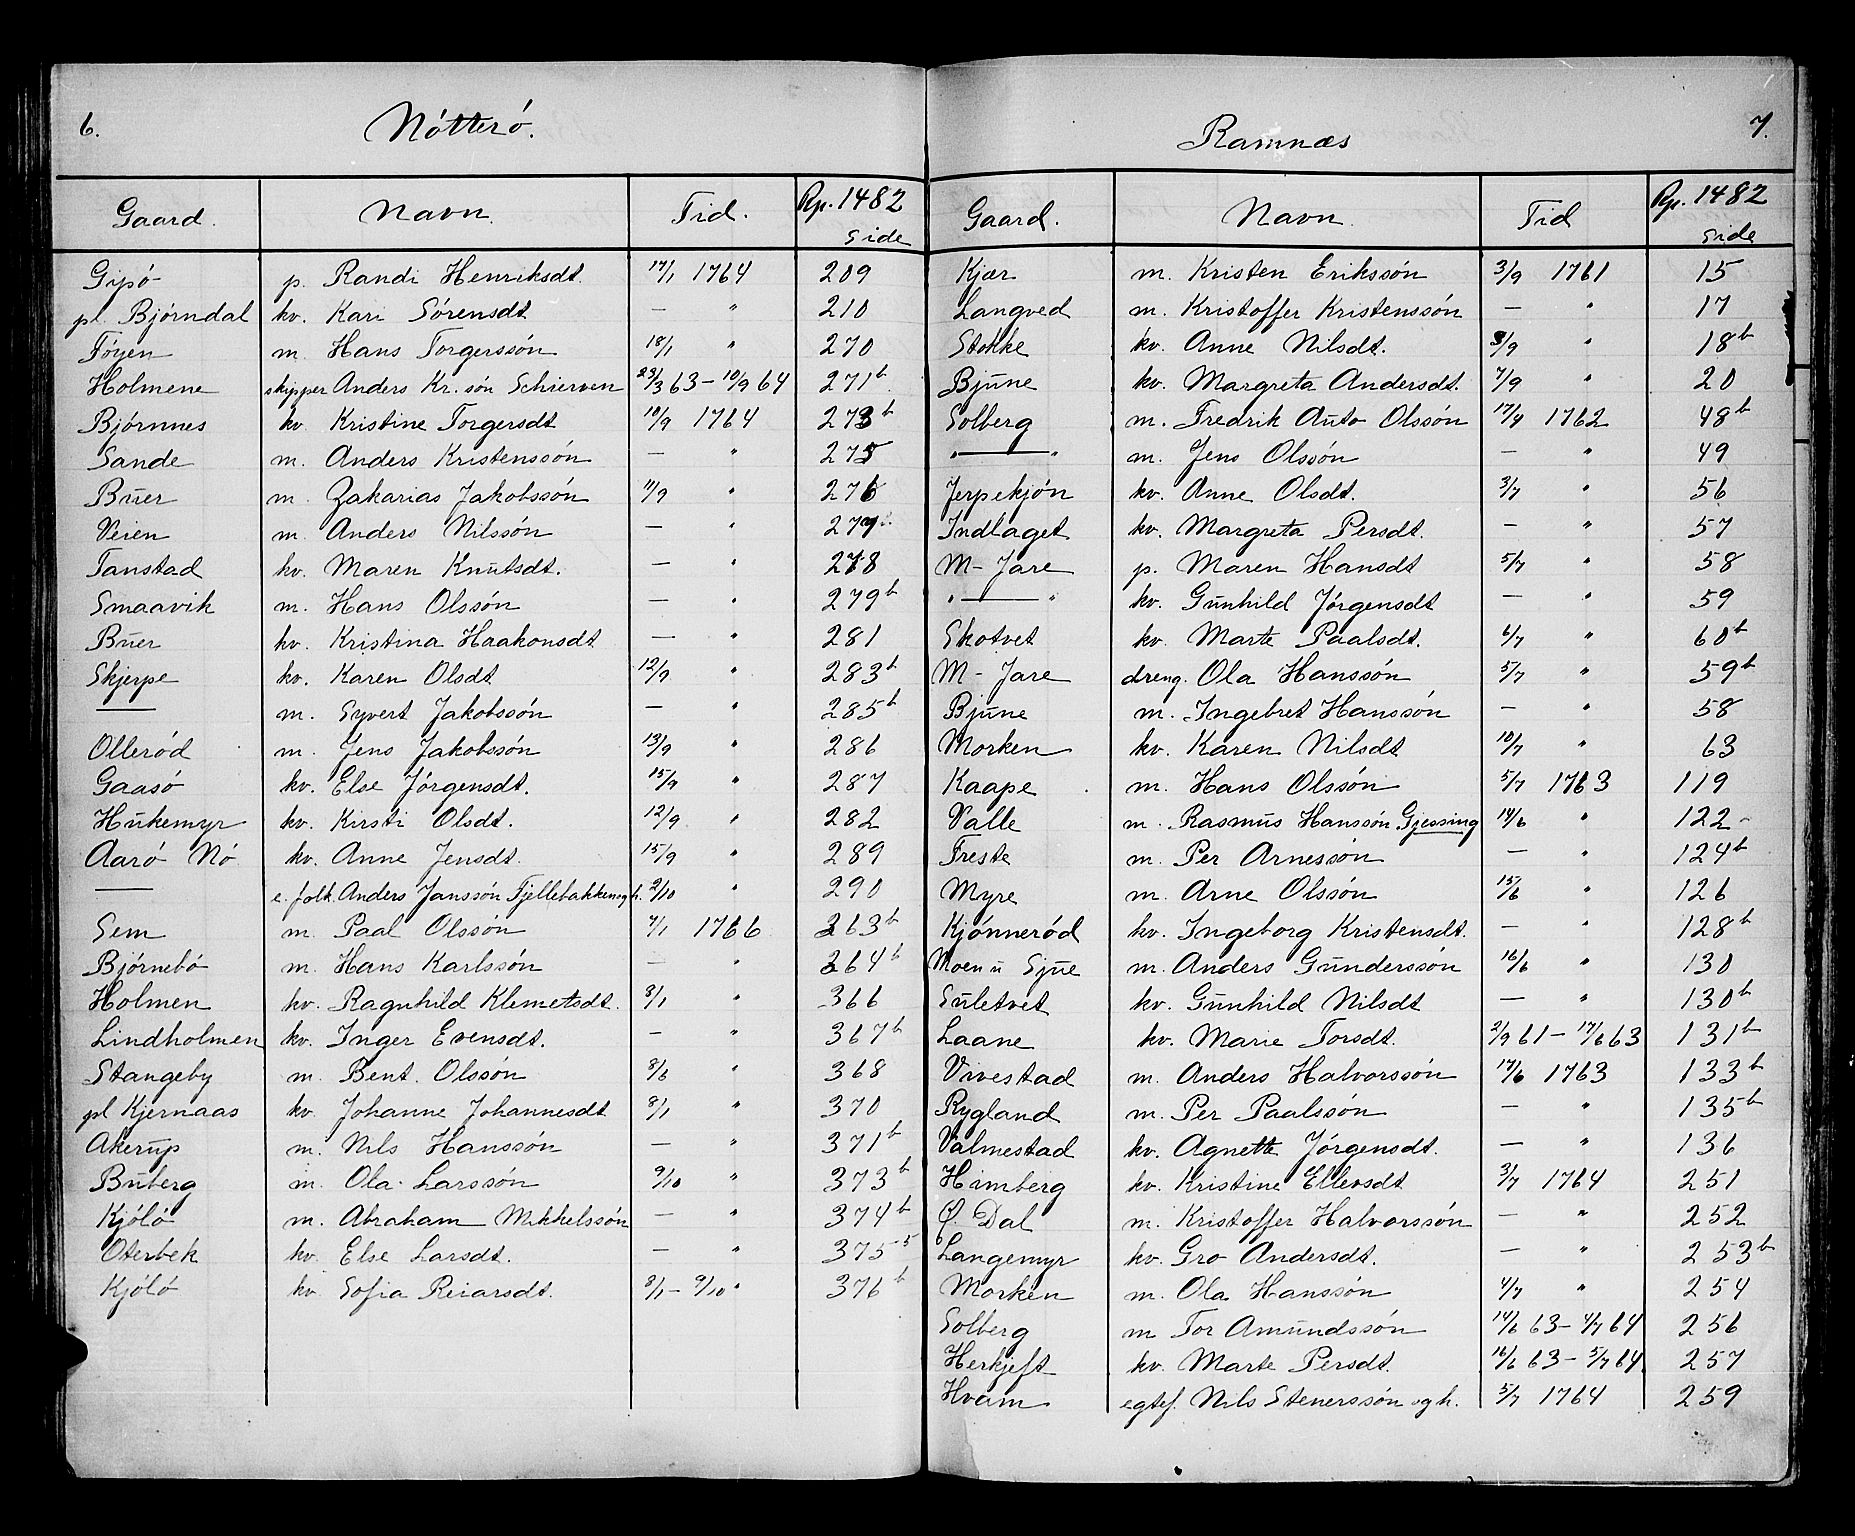 6.
Nötterö.
Gaard. Navn. Tid. Rp. 1482 Side
Gipö p. Randi Henriksdt. 17/1 1764 209
pl. Björndal kv. Kari Sörensdt — " 210
Föyen m. Hans Torgerssön 18/1 " 270
Holmene skipper Anders Kr. sön Schierven 23/3 63 – 10/9 64 271b
Björnnes kv. Kristine Torgersdt 10/9 1764 273b
Sande m. Anders Kristenssön — " 275
Buer m. Zakarias Jakobssön 11/9 " 276
Veien m. Anders Nilssön — " 277
Tanstad kv. Maren Knutsdt. — " 278
Smaavik m. Hans Olssön — " 279b
Buer kv. Kristina Haakonsdt — " 281
Skjerpe kv. Karen Olsdt 12/9 " 283b
— m. Syvert Jakobssön — " 285b
Olleröd m. Jens Jakobssön 13/9 " 286
Gaasö kv. Else Jörgensdt. 15/9 " 287
Hukemyr kv. Kirsti Olsdt. 12/9 " 282
Aarö Nö kv. Anne Jensdt. 15/9 " 289
— e. folk. Anders Janssön Fjellebakken og h. 2/10 " 290
Sem m. Paal Olssön 7/1 1766 363b
Björnebö m. Hans Karlssön — " 364b
Holmen kv. Ragnhild Klemetsdt. 8/1 " 366
Lindholmen kv. Inger Evensdt. — " 367b
Stangeby m. Bent. Olssön 8/6 " 368
pl Kjernaas kv. Johanne Johannesdt 8/1 " 370
Akerup m. Nils Hanssön — " 371b
Buberg m. Ola Larssön 9/10 " 373b
Kjölö m. Abraham Mikkelssön — " 374b
Oterbek kv. Else Larsdt. — " 375
Kjölö kv. Sofia Reiarsdt. 8/1 – 9/10 " 376b
7.
Ramnæs
Gaard. Navn. Tid Rp. 1482 Side
Kjær m. Kristen Erikssön 3/9 1761 15
Langved m. Kristoffer Kristenssön — " 17
Stokke kv. Anne Nilsdt. 3/9 " 18b
Bjune kv. Margreta Andersdt. 7/9 " 20
Solberg m. Fredrik Auto Olssön 17/4 1762 48b
" — " m. Jens Olssön — " 49
Jerpekjön kv. Anne Olsdt. 3/7 " 56
Indlaget kv. Margreta Persdt. — " 57
M- Jare p. Maren Hansdt 5/7 " 58
" — " kv. Gunhild Jörgensdt — " 59
Skotvet kv. Marte Paalsdt. 6/7 " 60b
M- Jare dreng. Ola Hanssön 5/7 " 59b
Bjune m. Ingebret Hanssön — " 58
Morken kv. Karen Nilsdt 10/7 " 63
Kaape m. Hans Olssön 5/7 1763 119
Valle m. Rasmus Hanssön Gjessing 14/6 " 122
Freste m. Per Arnessön — " 124b
Myre m. Arne Olssön 15/6 " 126
Kjönneröd kv. Ingeborg Kristensdt. — " 128b
Moen u Sjue m. Anders Gunderssön 16/6 " 130
Suletvet kv. Gunhild Nilsdt — " 130b
Laane kv. Marie Torsdt. 2/9 61 – 17/6 63 131b
Vivestad m. Anders Halvorssön 17/6 1763 133b
Rygland m. Per Paalssön — " 135b
Valmestad kv. Agnette Jörgensdt. — " 136
Himberg kv. Kristine Ellevsdt 3/7 1764 251
Ø. Dal m. Kristoffer Halvorssön — " 252
Langemyr kv. Gro Andersdt. — " 253b
Morken m. Ola Hanssön 4/7 " 254
Solberg m Tor Amundssön 14/6 63 – 4/7 64 256
Herkjeft kv. Marte Persdt. 16/6 63 – 5/7 64 257
Hvam egtef. Nils Stenerssön og h. 5/7 1764 259